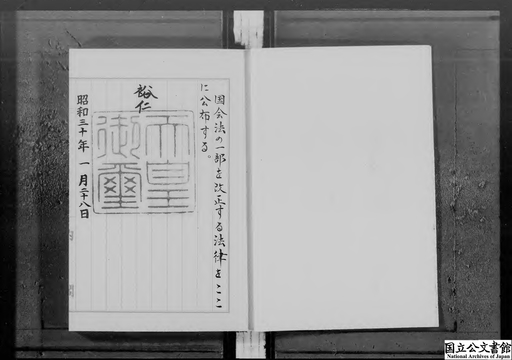 国会法の一部を改正する法律をここ
に公布する。
裕仁
天皇
御璽
昭和三十年一月二十八日
国立公文書館
National Archives of Japan